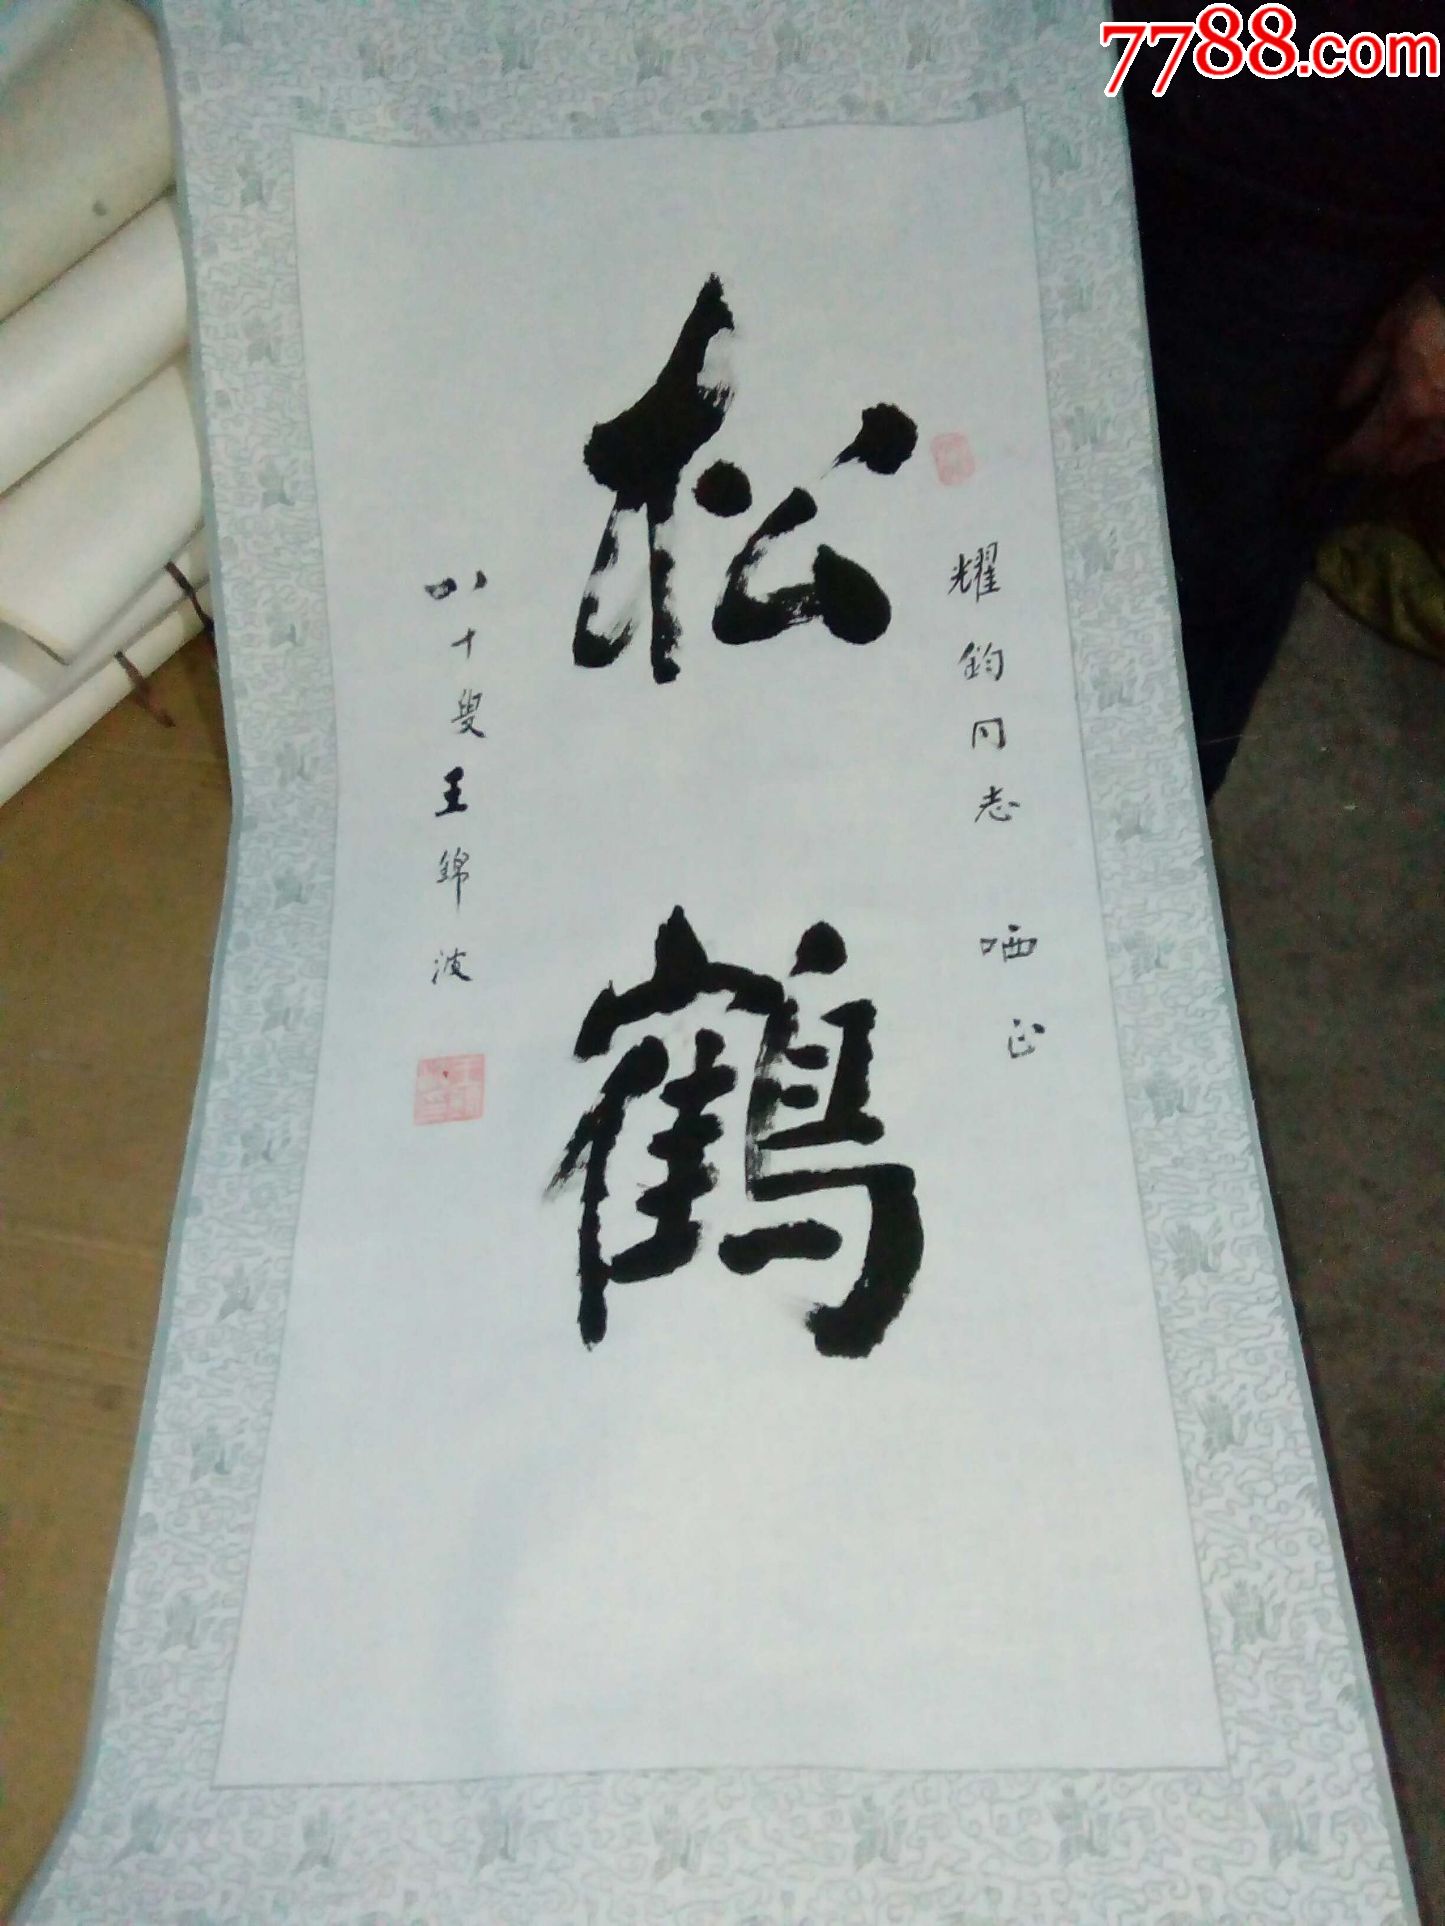 7788.com
耀鈞同志 哂正
松鶴
八十叟王錦波